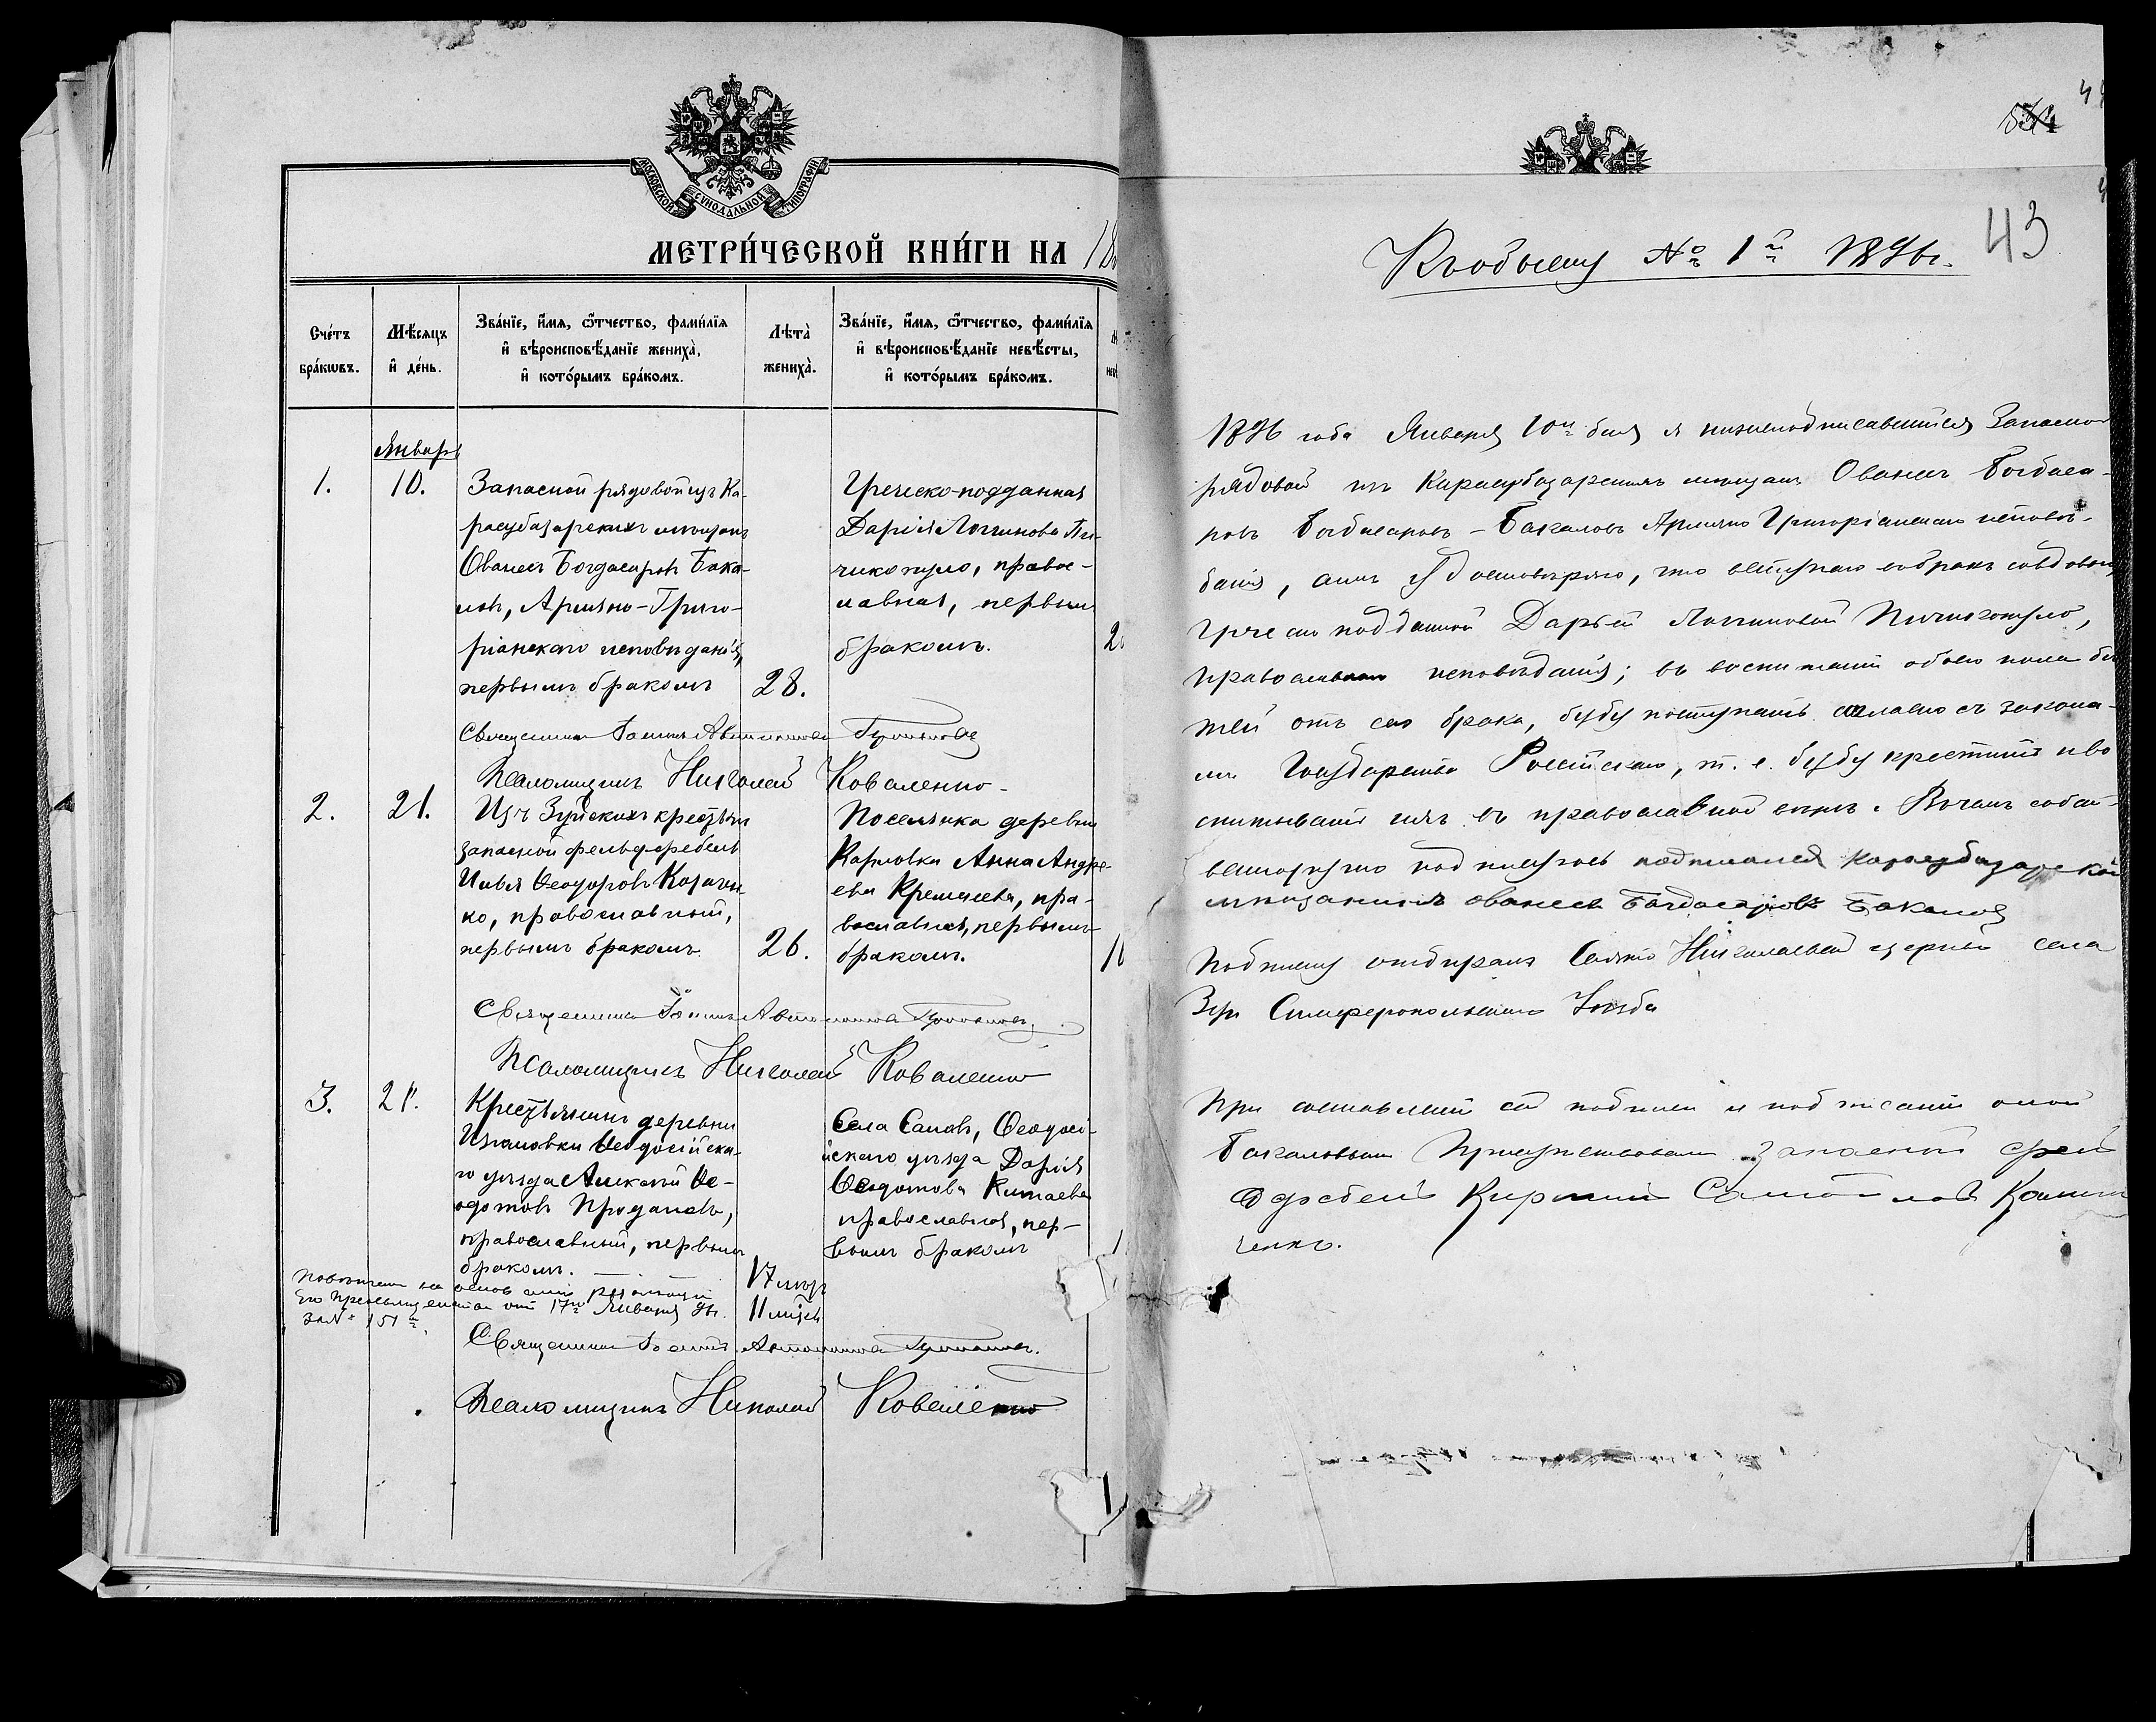 МОСКОВСКОЙ СѴНОДАЛЬНОЙ ТИПОГРАФІИ
МЕТРИ́ЧЕСКОЙ КНИ́ГИ НА 18
Сче́тъ бра́кѡвъ.
Мѣ́сяцъ и҆ де́нь.
Зва́нїе, и҆́мѧ, ѻ҆́тчество, фами́лїѧ
и҆ вѣроисповѣ́данїе жениха̀,
и҆ кото́рымъ бра́комъ.
Лѣта̀ жениха̀.
Зва́нїе, и҆́мѧ, ѻ҆́тчество, фами́лїѧ
и҆ вѣроисповѣ́данїе невѣ́сты,
и҆ кото́рымъ бра́комъ.
Январь
1. 10.
Запасной рядовой изъ Ка-
расубазарскихъ мѣщанъ
Ованесъ Богдасаровъ Бака-
ловъ, Армяно-Григо-
ріанскаго исповѣданія,
первымъ бракомъ
28.
Греческо-подданная
Дарія Логинова
православ-
лавная, первымъ
бракомъ.
Священникъ Іоаннъ
Псаломщикъ Николай Коваленко
2. 21.
Изъ Зуйскихъ крестьянъ
запасной фельдфебель
Илья Ѳеодоровъ Казачен-
ко, православный,
первымъ бракомъ
26.
Поселянка деревни
Карловки Анна Андре-
ева, пра-
вославная, первымъ
бракомъ.
Священникъ Іоаннъ
Псаломщикъ Николай Коваленко
3. 21.
Крестьянинъ деревни
Ѳеодосійска-
го уѣзда Алексѣй Ѳе-
одотовъ Продановъ,
православный, первымъ
бракомъ.
17 лѣтъ
11 мѣсяц
Села Саловъ, Ѳеодосі-
йскаго уѣзда Дарія
Ѳеодотова Китаева
православная, пер-
вымъ бракомъ
Повѣнчанъ на основаніи резолюціи
Его Преосвященства отъ 17го Января
за № 151
Священникъ Іоаннъ
Псаломщикъ Николай Коваленко
43
Къ обыску № 1й 1896г.
1896 года Января 10го дня я нижеподписавшійся Запасной
рядовой изъ Карасубазарскихъ мѣщанъ Ованесъ Богдаса-
ровъ Богдасаровъ-Бакаловъ Армяно Григоріанскаго исповѣ-
данія, симъ удостовѣряю, что вступаю въ бракъ съ вдовою
греческо подданной Дарьей Логиновой
православнаго исповѣданія; въ воспитаніи обоего пола дѣ-
тей отъ сего брака, буду поступать согласно съ закона-
ми Государства Россійскаго, т. е. буду крестить и во
спитывать ихъ въ православной вѣрѣ. Въ чемъ собст-
венноручно подписуюсь подписался карасубазарской
мѣщанинъ ованесъ Богдасаровъ Бакаловъ
Подписку отбиралъ Свято Николаевской церкви села
Зуи Симферопольскаго Уѣзда
При составленіи сей подписки и подписаніи оной
Бакаловымъ присутствовалъ запасный фель
дфебель